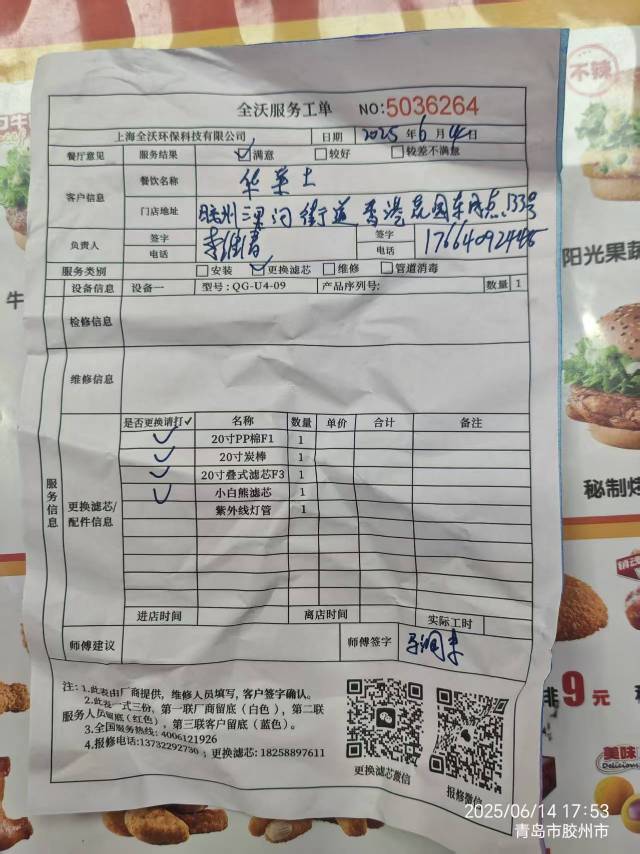 全沃服务工单 NO:5036264
上海全沃环保科技有限公司 日期 2025年6月14日
餐厅意见 服务结果 ☑满意 □较好 □较差不满意
客户信息 餐饮名称 华莱士
门店地址 胶州三里河街道香港花园东网点133号
负责人 签字 签字
电话 电话
服务类别 □安装 ☑更换滤芯 □维修 □管道消毒
设备信息 设备一 型号:QG-U4-09 产品序列号: 数量 1
检修信息
维修信息
服务信息
更换滤芯/配件信息
是否更换请打✓ 名称 数量 单价 合计 备注
✓ 20寸PP棉F1 1
✓ 20寸炭棒 1
✓ 20寸叠式滤芯F3 1
✓ 小白熊滤芯 1
紫外线灯管 1
进店时间 离店时间 实际工时
师傅建议 师傅签字
注:1.此表由厂商提供,维修人员填写,客户签字确认。
2.此表一式三份,第一联厂商留底(白色),第二联
服务人员留底(红色),第三联客户留底(蓝色)。
3.全国服务热线:4006121926
4.报修电话:13732292730;更换滤芯:18258897611
更换滤芯微信
报修微信
不辣
阳光果蔬
秘制烤
排9元
美味
Delicious
牛
2025/06/14 17:53
青岛市胶州市